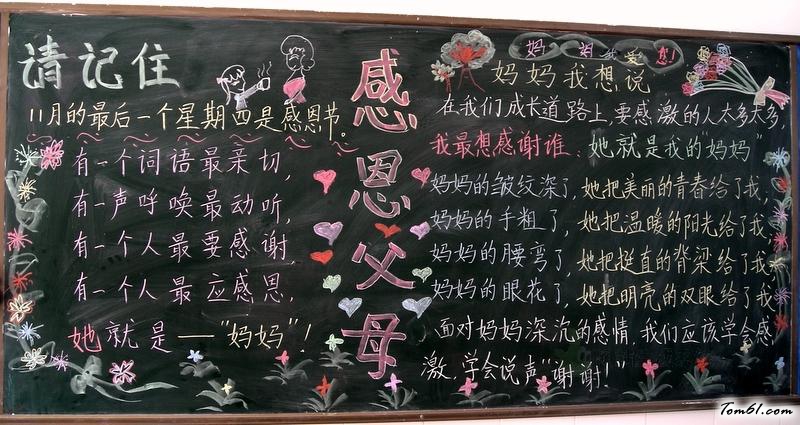 请记住
11月的最后一个星期四是感恩节。
有一个词语最亲切,
有一声呼唤最动听,
有一个人最要感谢,
有一个人最应感恩,
她就是——"妈妈"!
感恩父母
妈妈我爱您!
妈妈我想说
在我们成长道路上,要感激的人太多太多,
我最想感谢谁:她就是我的"妈妈"
妈妈的皱纹深了,她把美丽的青春给了我,
妈妈的手粗了,她把温暖的阳光给了我,
妈妈的腰弯了,她把挺直的脊梁给了我,
妈妈的眼花了,她把明亮的双眼给了我,
面对妈妈深沉的感情,我们应该学会感
激,学会说声"谢谢!"
Tom61.com